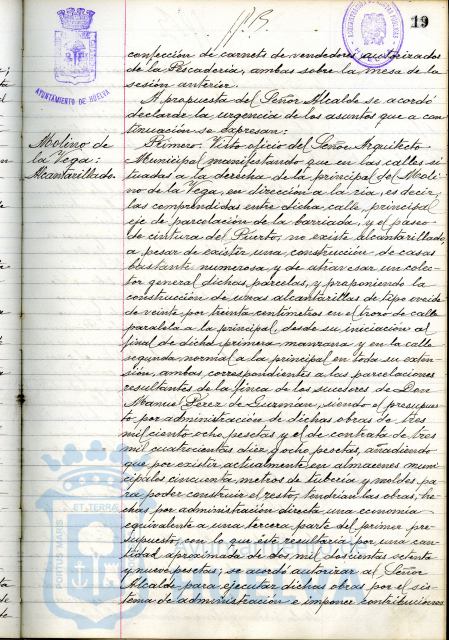 19
AYUNTAMIENTO DE HUELVA
confección de carnets de vendedores autorizados
de la Pescadería, ambas sobre la mesa de la
sesión anterior.
A propuesta del Señor Alcalde se acordó
declarar la urgencia de los asuntos que a con
tinuación se expresan:
Molino de
la Vega:
Alcantarillado.
Primero. Visto oficio del Señor Arquitecto
Municipal manifestando que en las calles si
tuadas a la derecha de la principal del Moli
no de la Vega, en dirección a la ria, es decir,
las comprendidas entre dicha calle, principal
eje de parcelación de la barriada, y el paseo
de cintura del Puerto, no existe alcantarillado,
a pesar de existir una construcción de casas
bastante numerosa y de atravesar un colec
tor general dichas parcelas, y proponiendo la
construcción de unas alcantarillas de tipo ovoide
de veinte por treinta centímetros en el trozo de calle
paralela a la principal, desde su iniciación al
final de dicha primera manzana y en la calle
segunda normal a la principal en toda su exten
sión, ambas correspondientes a las parcelaciones
resultantes de la finca de los sucesores de Don
Manuel Pérez de Guzmán, siendo el presupues
to por administración de dichas obras de tres
mil ciento ocho pesetas y el de contrata de tres
mil cuatrocientas diez y ocho pesetas, añadiendo
que por existir actualmente en almacenes muni
cipales cincuenta metros de tubería y moldes pa
ra poder construir el resto, tendrían las obras, he
chas por administración directa una economía
equivalente a una tercera parte del primer pre
supuesto, con lo que éste resultaría por una can
tidad aproximada de dos mil doscientas setenta
y nueve pesetas; se acordó autorizar al Señor
Alcalde para ejecutar dichas obras por el sis
tema de administración e imponer contribuciones
PORTUS MARIS
ET TERRÆ